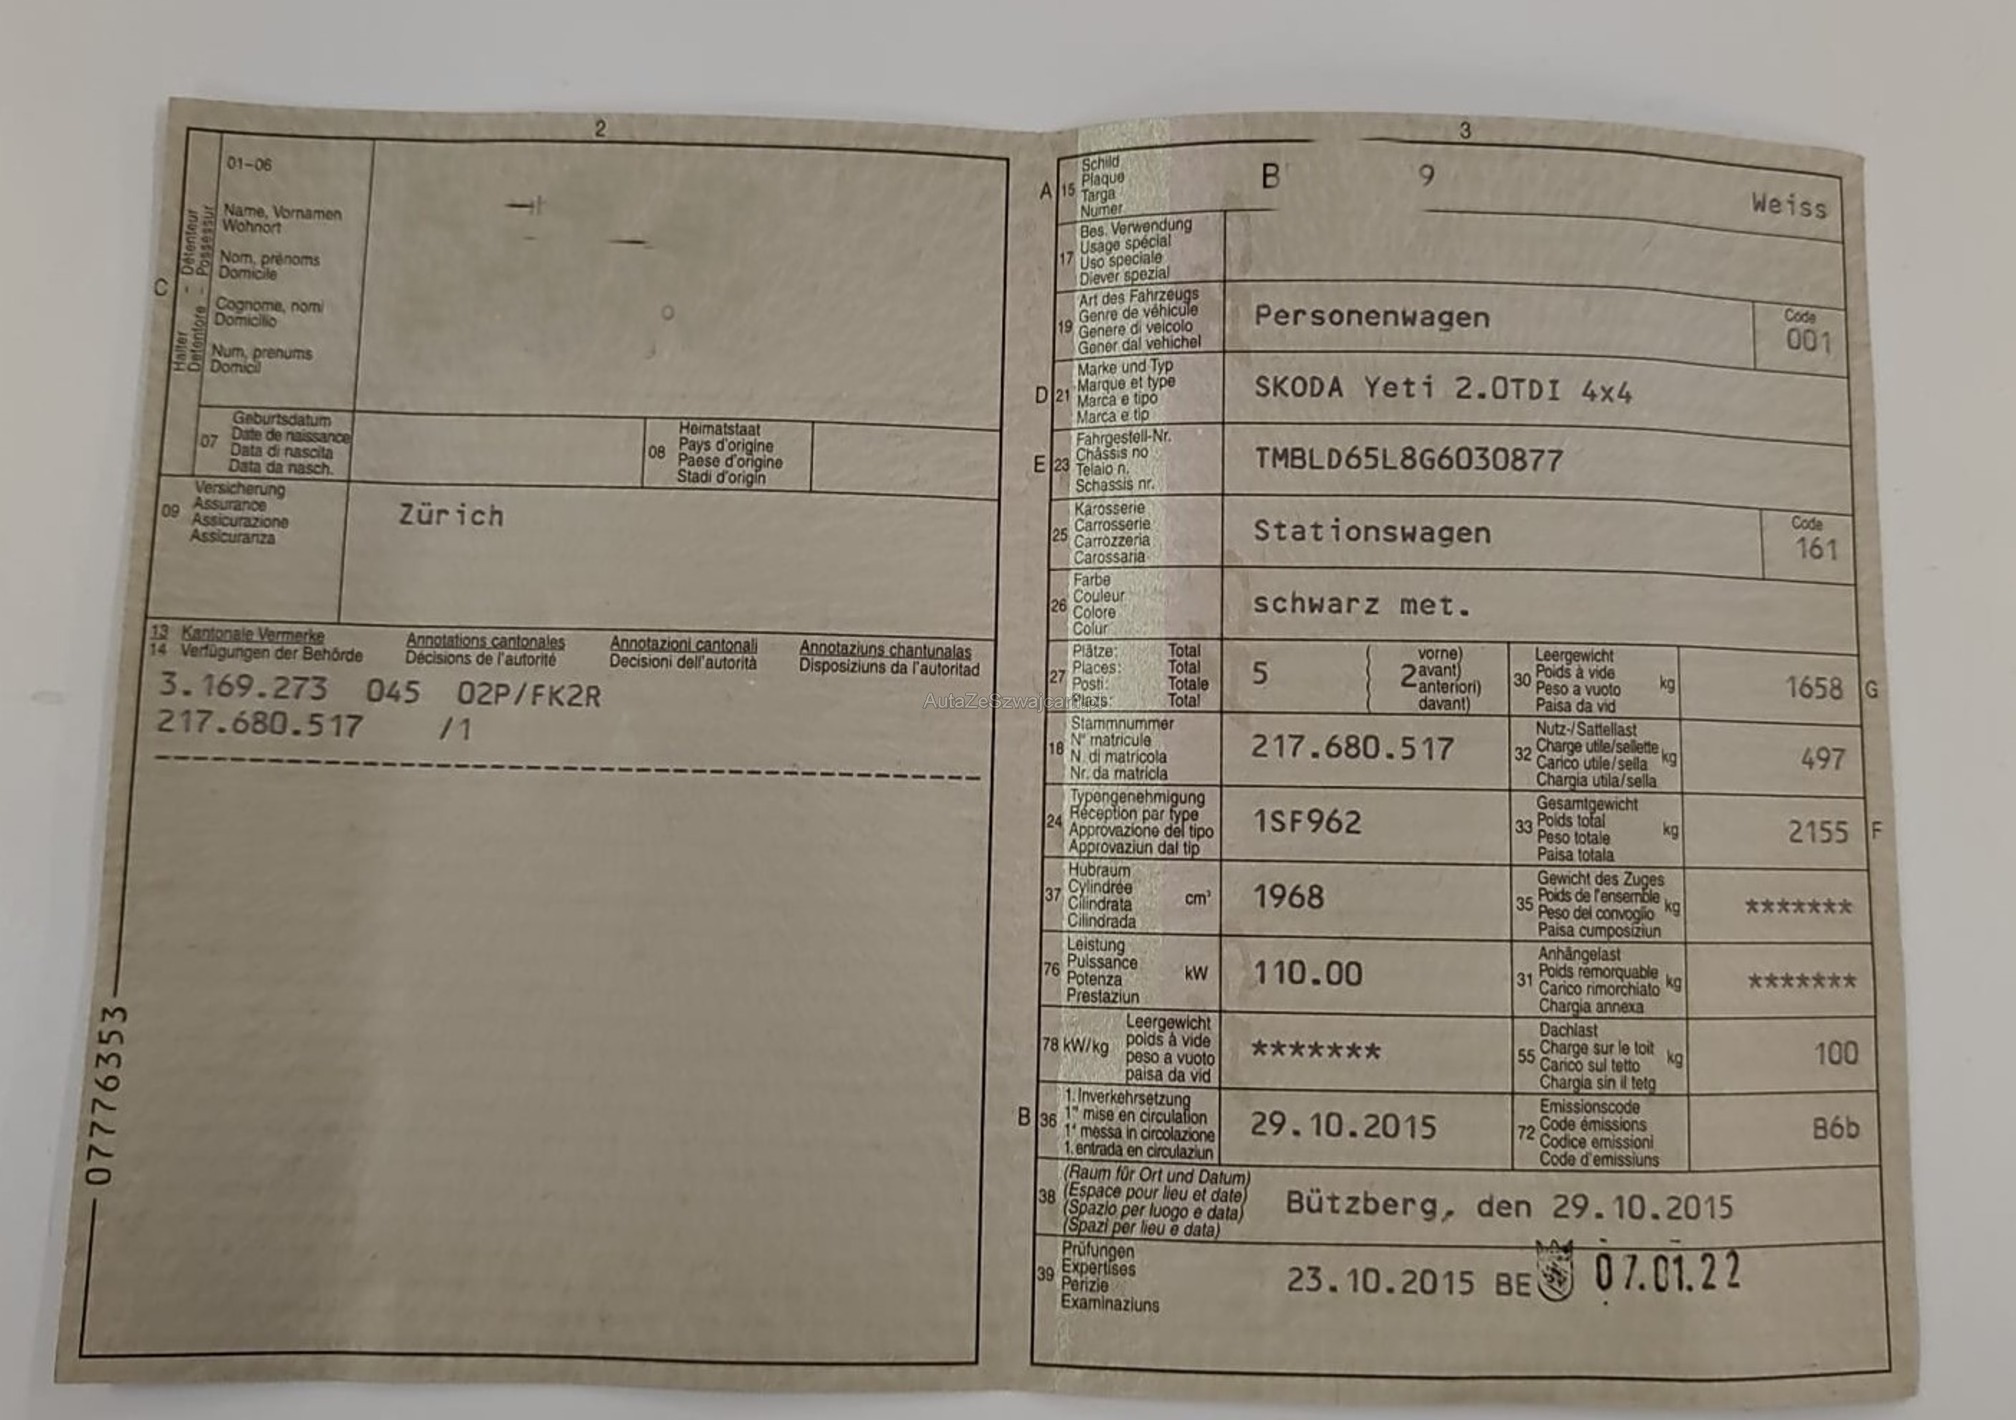 2
01-06
Name, Vornamen
Wohnort
Nom, prénoms
Domicile
Cognome, nomi
Domicilio
Num, prenums
Domicil
C
Halter - Détenteur
Detentore - Possessur
07
Geburtsdatum
Date de naissance
Data di nascita
Data da nasch.
08
Heimatstaat
Pays d'origine
Paese d'origine
Stadi d'origin
09
Versicherung
Assurance
Assicurazione
Assicuranza
Zürich
13 Kantonale Vermerke Annotations cantonales Annotazioni cantonali Annotaziuns chantunalas
14 Verfügungen der Behörde Décisions de l'autorité Decisioni dell'autorità Disposiziuns da l'autoritad
3.169.273 045 02P/FK2R
217.680.517 /1
077776353
3
A 15
Schild
Plaque
Targa
Numer
B 9 Weiss
17
Bes. Verwendung
Usage spécial
Uso speciale
Diever spezial
19
Art des Fahrzeugs
Genre de véhicule
Genere di veicolo
Gener dal vehichel
Personenwagen
Code
001
D 21
Marke und Typ
Marque et type
Marca e tipo
Marca e tip
SKODA Yeti 2.0TDI 4x4
E 23
Fahrgestell-Nr.
Châssis no
Telaio n.
Schassis nr.
TMBLD65L8G6030877
25
Karosserie
Carrosserie
Carrozzeria
Carossaria
Stationswagen
Code
161
26
Farbe
Couleur
Colore
Colur
schwarz met.
27
Plätze: Total
Places: Total
Posti: Totale
Plazs: Total
5
2
vorne)
avant)
anteriori)
davant)
30
Leergewicht
Poids à vide
Peso a vuoto
Paisa da vid
kg
1658 G
18
Stammnummer
N° matricule
N. di matricola
Nr. da matricla
217.680.517
32
Nutz-/Sattellast
Charge utile/sellette
Carico utile/sella
Chargia utila/sella
kg
497
24
Typengenehmigung
Réception par type
Approvazione del tipo
Approvaziun dal tip
1SF962
33
Gesamtgewicht
Poids total
Peso totale
Paisa totala
kg
2155 F
37
Hubraum
Cylindrée
Cilindrata
Cilindrada
cm³
1968
35
Gewicht des Zuges
Poids de l'ensemble
Peso del convoglio
Paisa cumposiziun
kg
*******
76
Leistung
Puissance
Potenza
Prestaziun
kW
110.00
31
Anhängelast
Poids remorquable
Carico rimorchiato
Chargia annexa
kg
*******
78 kW/kg
Leergewicht
poids à vide
peso a vuoto
paisa da vid
*******
55
Dachlast
Charge sur le toit
Carico sul tetto
Chargia sin il tetg
kg
100
B 36
1. Inverkehrsetzung
1re mise en circulation
1a messa in circolazione
1. entrada en circulaziun
29.10.2015
72
Emissionscode
Code émissions
Codice emissioni
Code d'emissiuns
B6b
38
(Raum für Ort und Datum)
(Espace pour lieu et date)
(Spazio per luogo e data)
(Spazi per lieu e data)
Bützberg, den 29.10.2015
39
Prüfungen
Expertises
Perizie
Examinaziuns
23.10.2015 BE 07.01.22